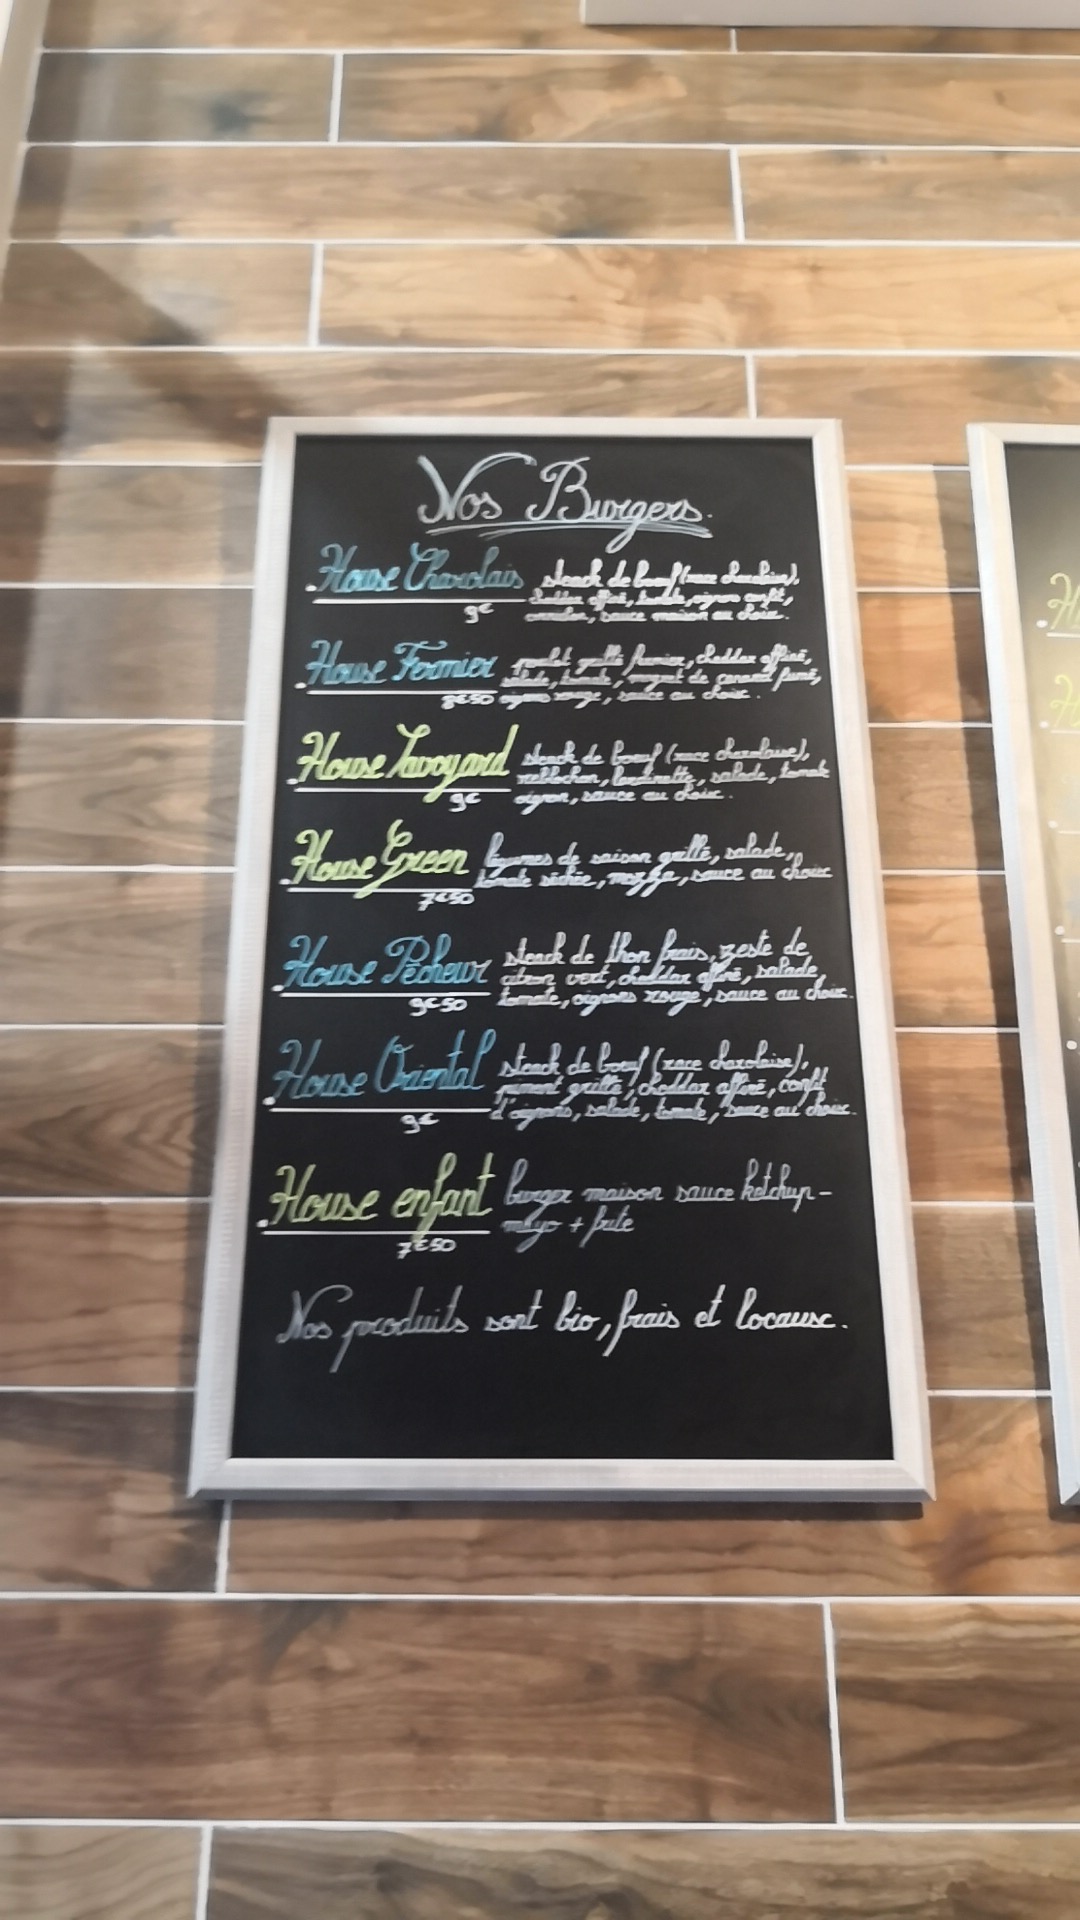 Nos Burgers.
House Charolais steack de bœuf (race charolaise),
cheddar affiné, tomate, oignons confit,
9€ cornichon, sauce maison au choix.
House Fermier poulet grillé fermier, cheddar affiné,
salade, tomate, magret de canard fumé,
8€50 oignons rouge, sauce au choix.
House Savoyard steack de bœuf (race charolaise),
reblochon, lardinette, salade, tomate
9€ oignon, sauce au choix.
House Green légumes de saison grillé, salade,
tomate séchée, mozza, sauce au choix
7€50
House Pêcheur steack de thon frais, zeste de
citron vert, cheddar affiné, salade,
9€50 tomate, oignons rouge, sauce au choix.
House Oriental steack de bœuf (race charolaise),
piment grillé, cheddar affiné, confit
9€ d'oignons, salade, tomate, sauce au choix.
House enfant burger maison sauce ketchup-
mayo + frite
7€50
Nos produits sont bio, frais et locaux.